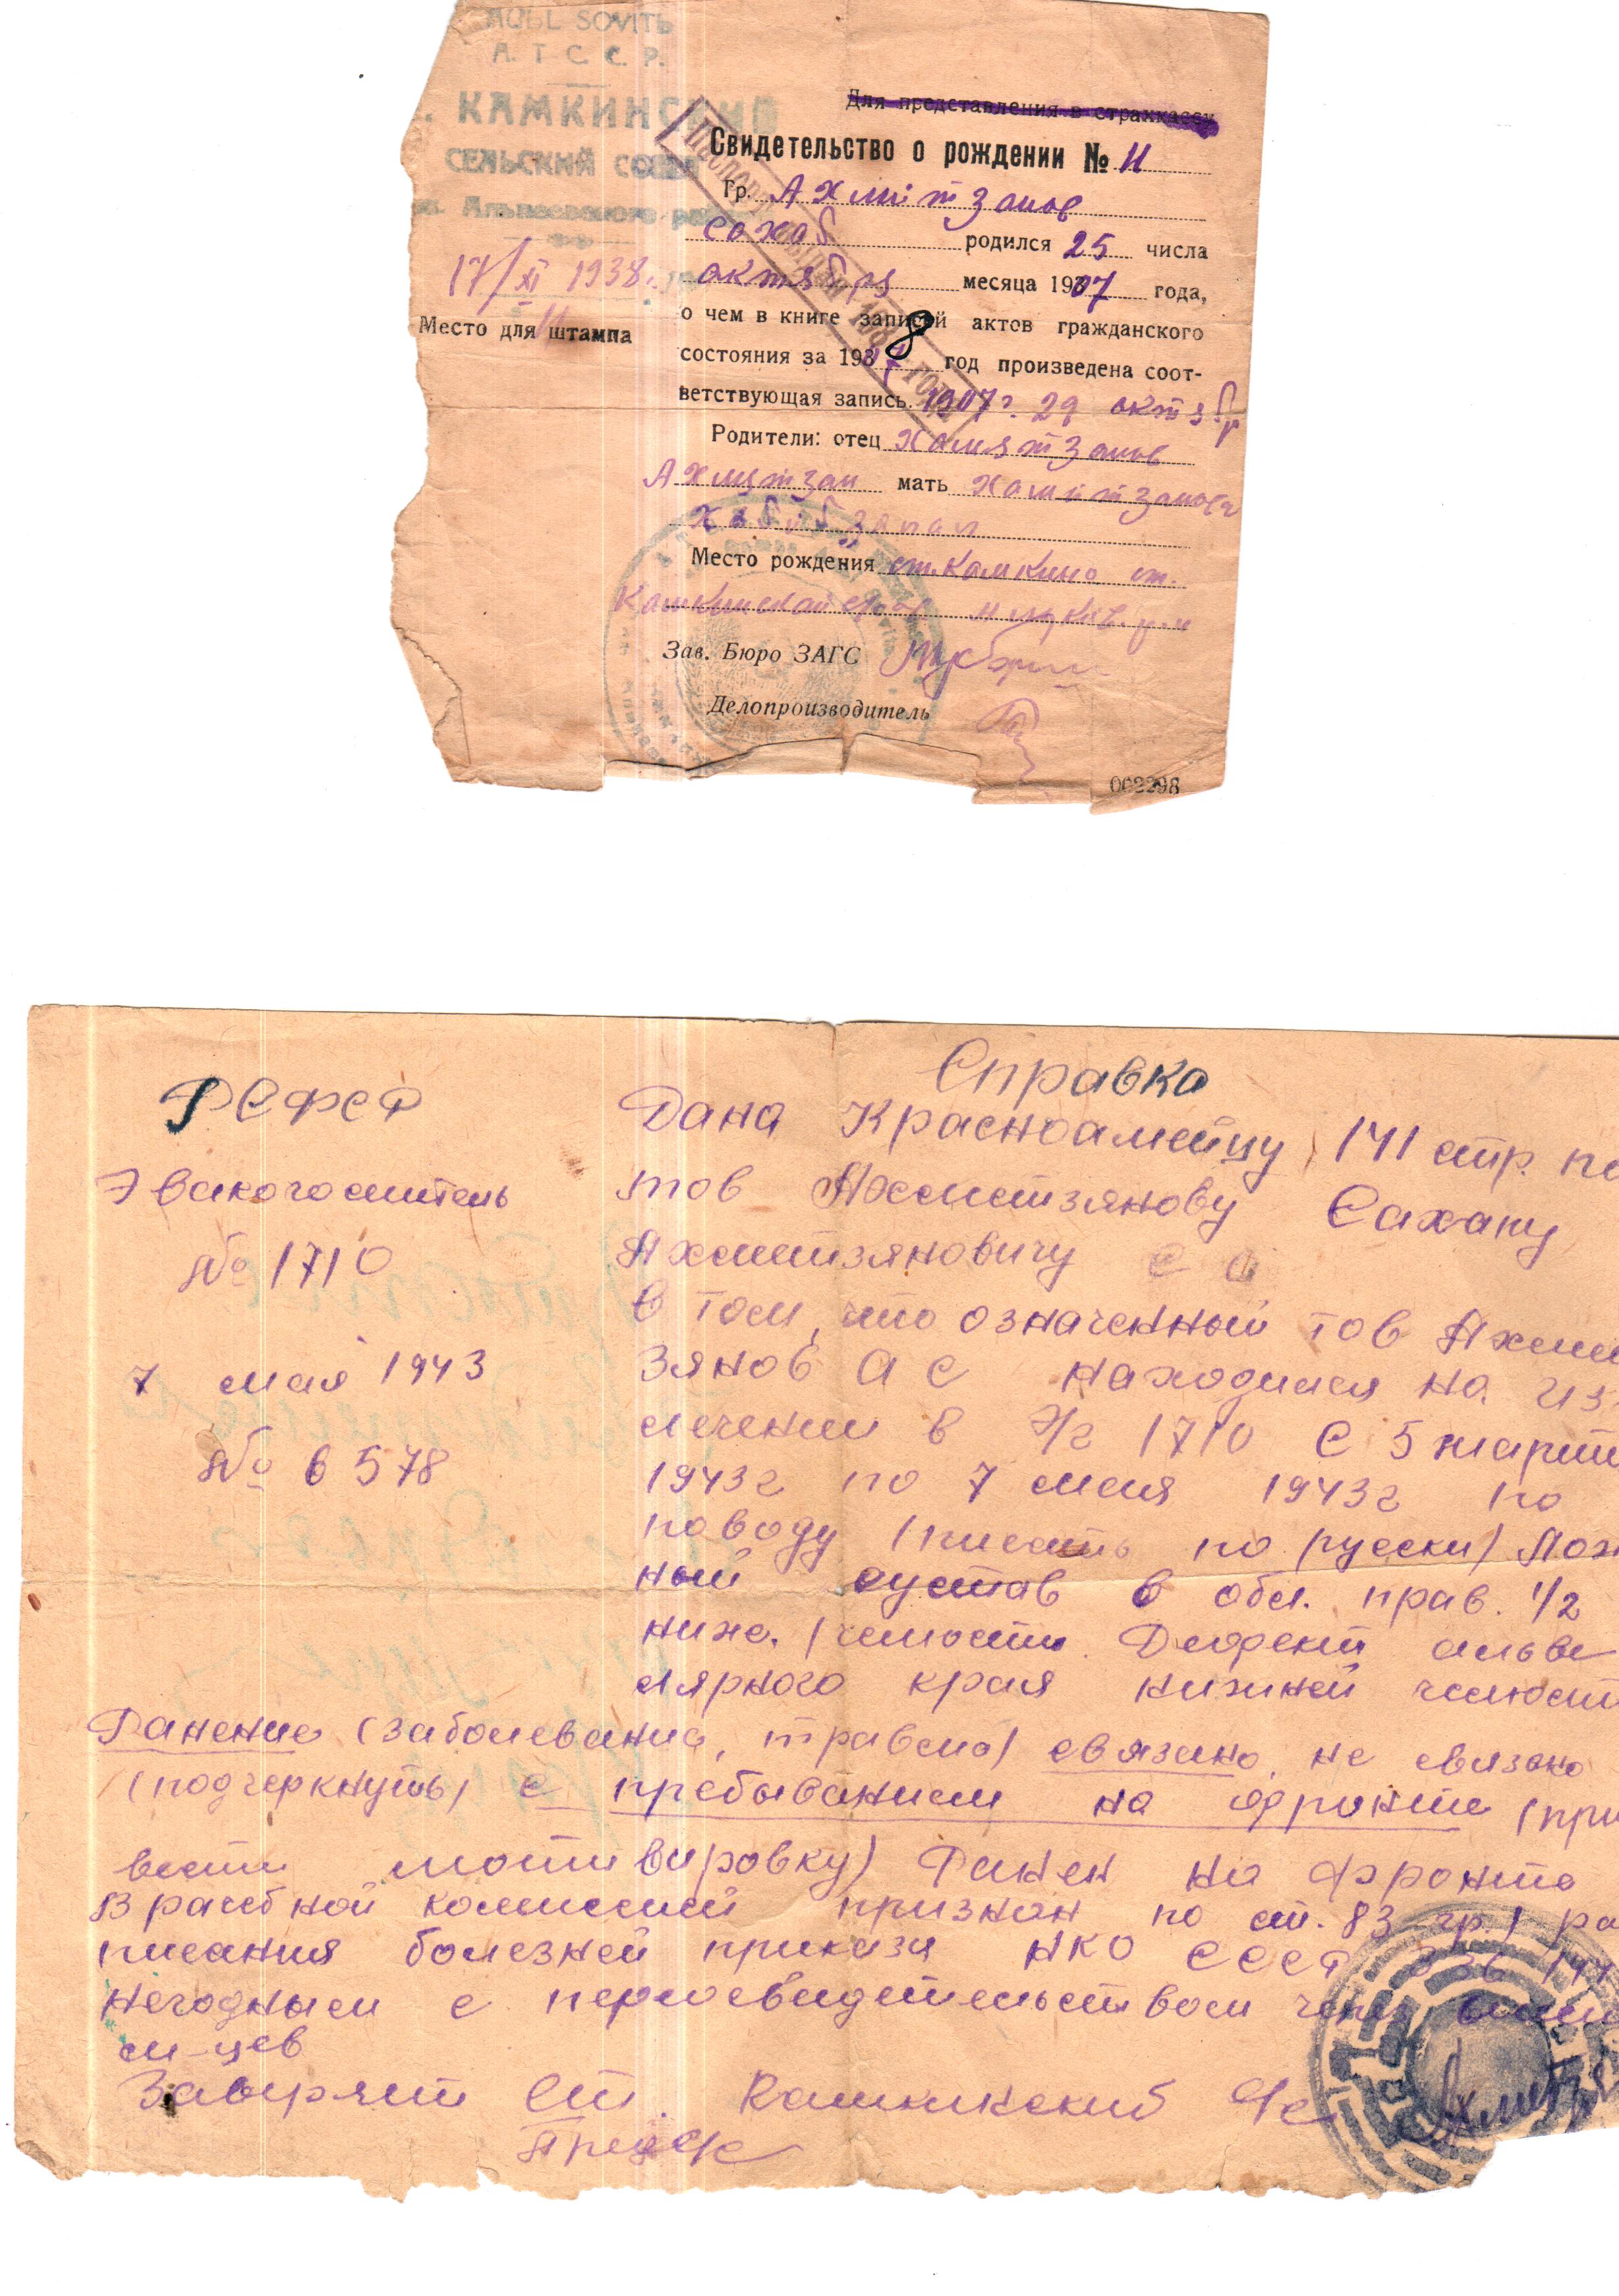 AQЬL SOVITЬ
A. T C. C. P.
КАМКИНСКИЙ
СЕЛЬСКИЙ СОВЕТ
17/XI 1938
Место для штампа
Для представления в страхкассу
Свидетельство о рождении № 11
Гр. Ахмитзанов
Сахаб родился 25 числа
октября месяца 1907 года,
о чем в книге записей актов гражданского
состояния за 1938 год произведена соот-
ветствующая запись. 1907 г. 29 октябр
Родители: отец Хамятзанов
Ахмутзан мать Хамитзанова
Место рождения ст. Камкино ст.
Зав. Бюро ЗАГС
Делопроизводитель
002298
паспорт выдан 193 года
РСФСР
Эвакогоспиталь
№ 1710
7 мая 1943
№ 6578
Справка
Дана Красноамейцу 141 стр. по
тов Ахметзянову Сахапу
Ахметзяновичу
в том, что означенный тов Ахме
зянов А С находился на из-
лечении в Э/г 1710 с 5 марта
1943г по 7 мая 1943г по
поводу (писать по русски) Лож
ный сустав в обл. прав. 1/2
ниж. челюсти. Дефект альве
лярного края нижней челюсти
Ранение (заболевание, травма) связано, не связано
(подчеркнуть) с пребыванием на фронте (при
вести мотивировку) Ранен на фронте
Врачебной комиссией признан по ст. 83 гр. 1 ра
писания болезней приказа НКО СССР 336
негодным с переосвидетельством через
м-цев
Заверяет Ст. Камкинский